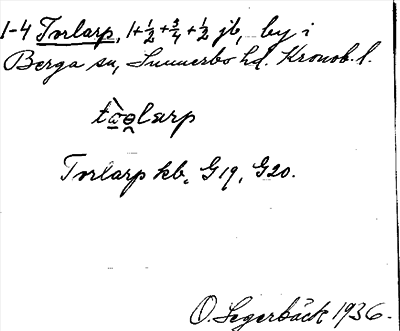 1-4 Torlarp, 1+½+¾+½ jb, by i
Berga sn, Sunnerbo hd. Kronob. l.
Torlarp kb. G19, G20.
O. Segerbäck 1936.